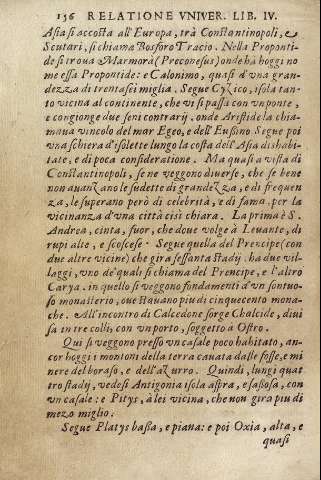 156 RELATIONE VNIVER. LIB. IV.
Asia si accosta all'Europa, trà Constantinopoli, e
Scutari, si chiama Bosforo Tracio. Nella Proponti-
de si troua Marmorà (Preconesus) onde hà hoggi no
me essa Propontide: e Calonimo, quasi d'vna gran-
dezza di trentasei miglia. Segue Cyzico, isola tan-
to vicina al continente, che vi si passa con vn ponte,
e congionge due seni contrarij. onde Aristide la chia-
maua vincolo del mar Egeo, e dell'Eussino Segue poi
vna schiera d'isolette lungo la costa dell'Asia dishabi-
tate, e di poca consideratione. Ma quasi a vista di
Constantinopoli, se ne veggono diuerse, che se bene
non auanzano le sudette di grandezza, e di frequen
za, le superano però di celebrità, e di fama, per la
vicinanza d'vna città così chiara. La prima è S.
Andrea, cinta, fuor, che doue volge à Leuante, di
rupi alte, e scoscese. Segue quella del Prencipe (con
due altre vicine) che gira sessanta stadij. ha due vil-
laggi, vno de'quali si chiama del Prencipe, e l'altro
Carya. in quello si veggono fondamenti d'vn sontuo-
so monasterio, oue stauano piu di cinquecento mona-
che. All'incontro di Calcedone sorge Chalcide, diui
sa in tre colli, con vn porto, soggetto à Ostro.
Qui si veggono presso vn casale poco habitato, an-
cor hoggi i montoni della terra cauata dalle fosse, e mi
nere del boraso, e dell'azurro. Quindi, lungi quat
tro stadij, vedesi Antigonia isola aspra, e sassosa, con
vn casale: e Pitys, à lei vicina, che non gira piu di
mezo miglio.
Segue Platys bassa, e piana: e poi Oxia, alta, e
quasi